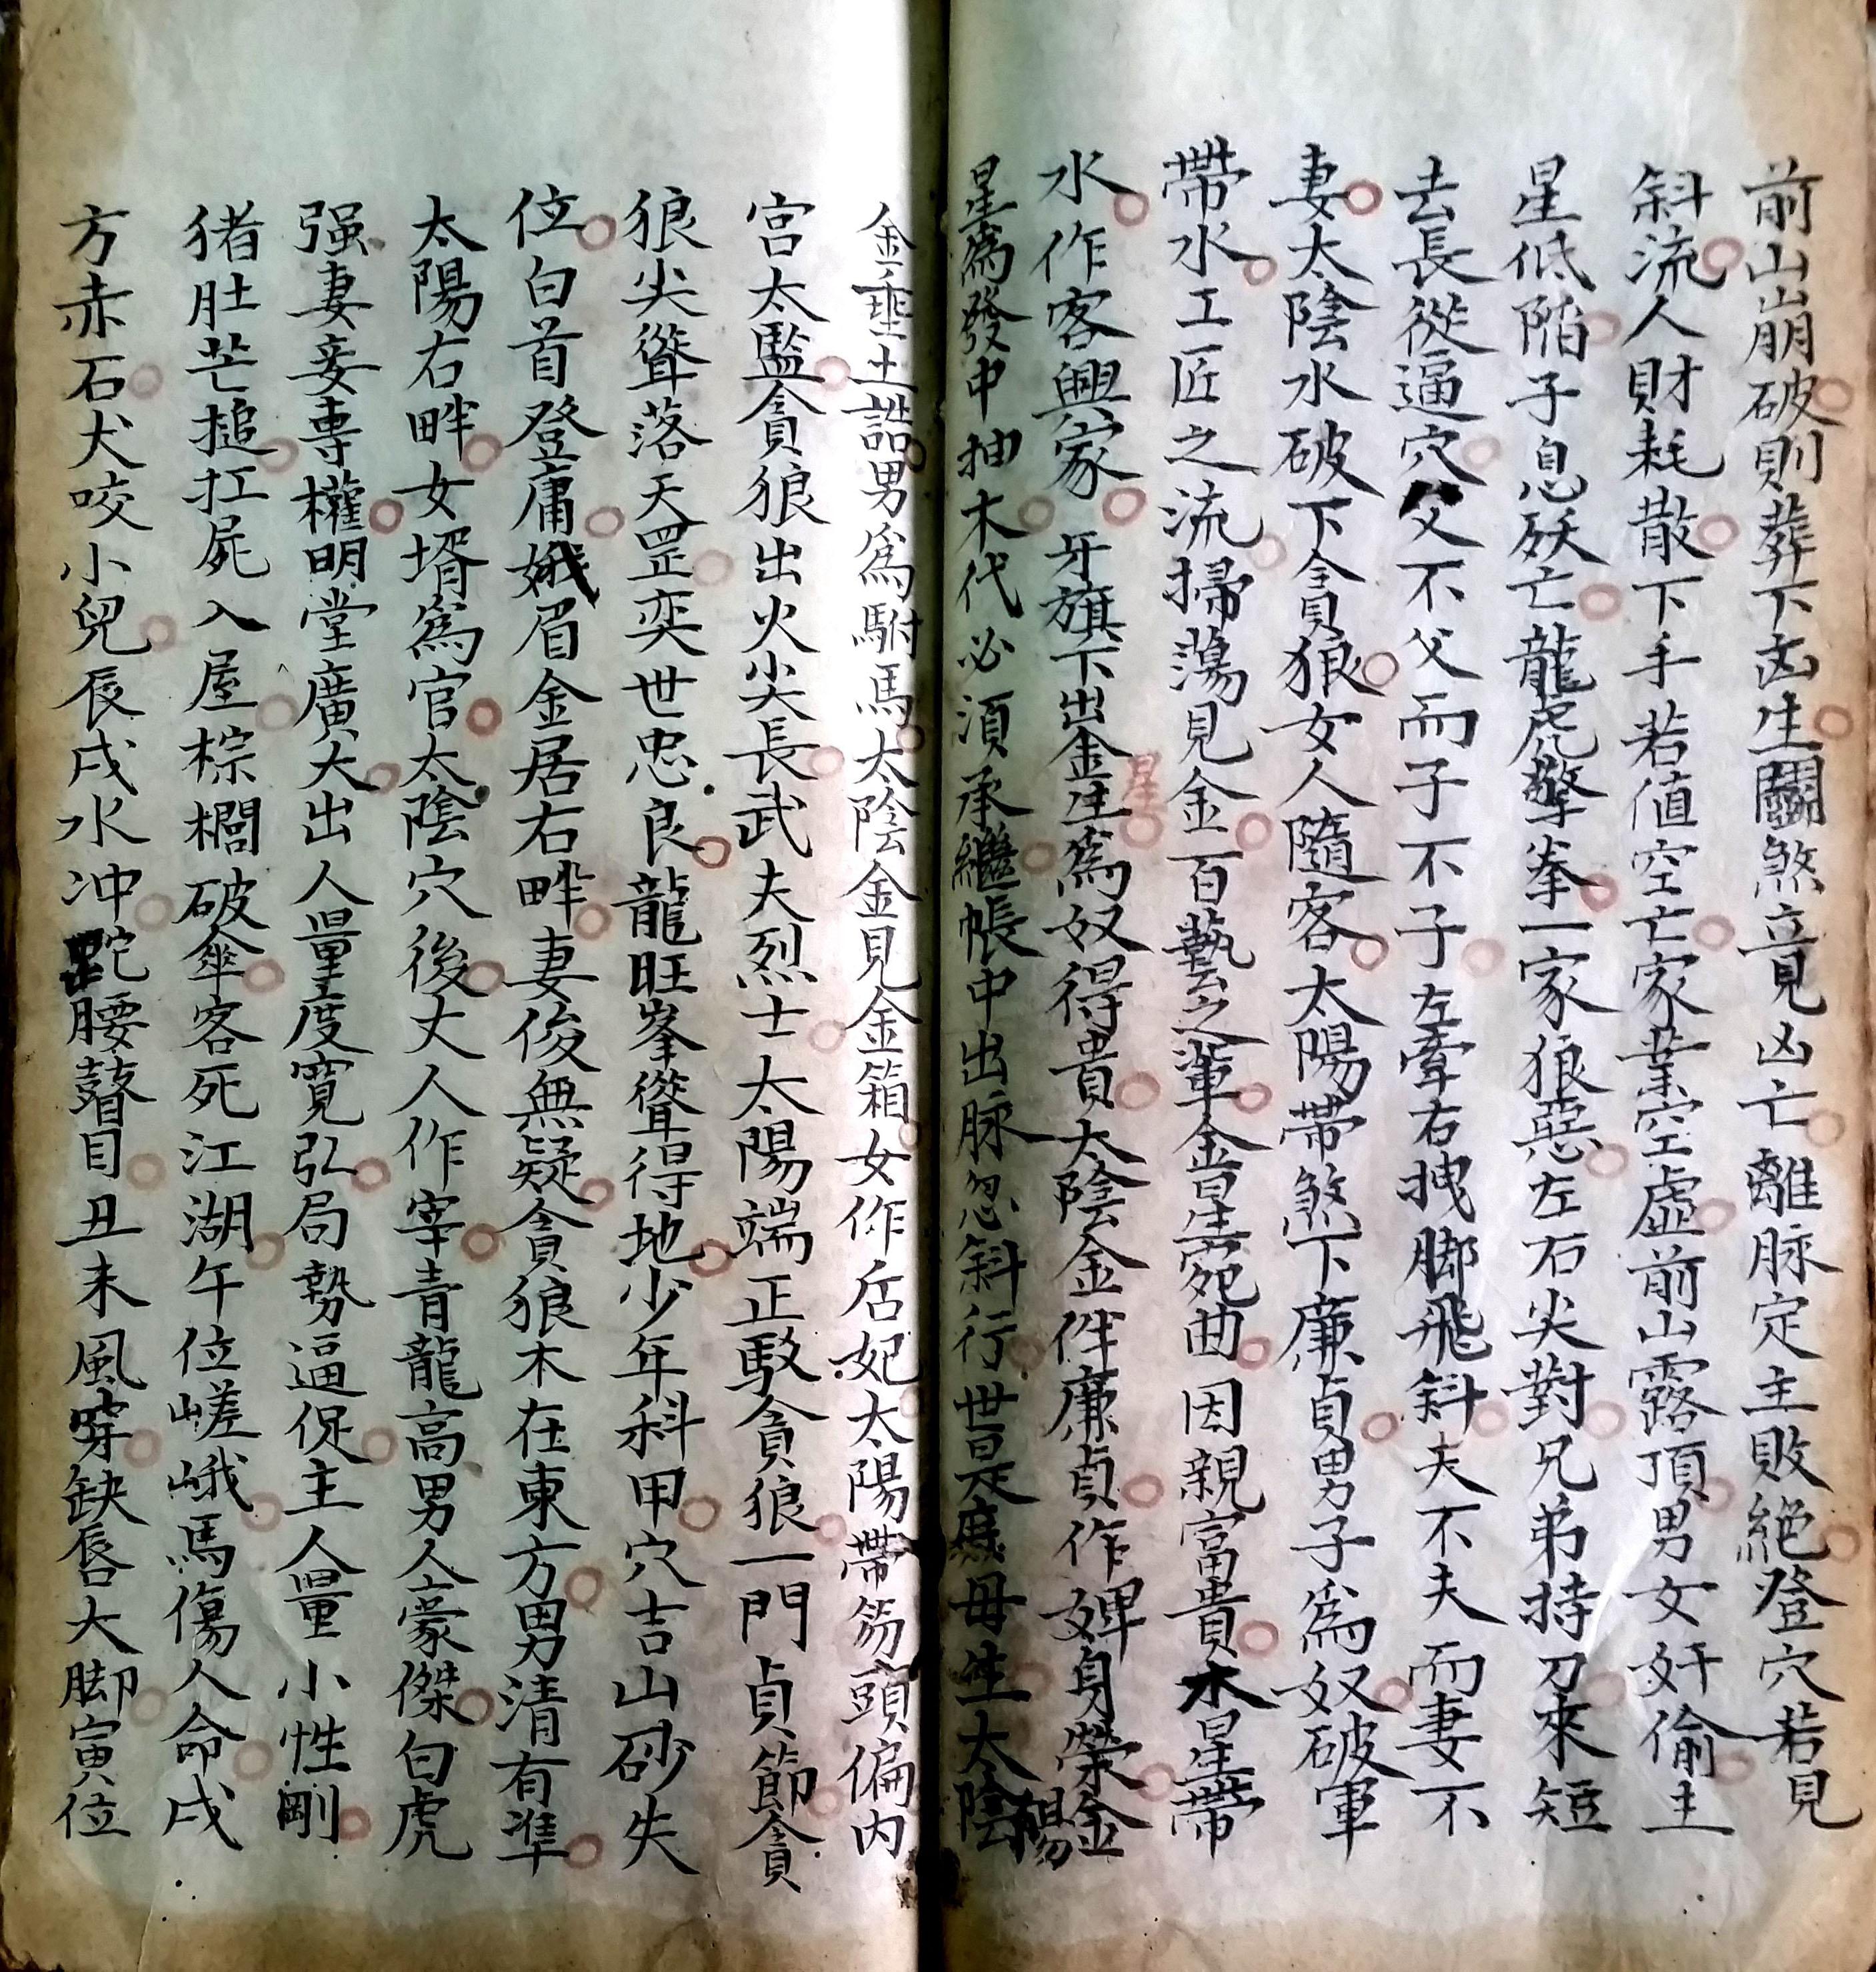 前山崩破則葬下凶生鬭煞竟見凶亡離脉定主敗絕登穴若見
斜流人財耗散下手若值空亡家業空虛前山露頂男女奸偷主
星低陷子息殀亡龍虎擎拳一家狼惡左右尖對兄弟持刀來短
去長從逼穴父不父而子不子左牽右拽脚飛斜夫不夫而妻不
妻太陰水破下貪狼女人隨客太陽帶煞下廉貞男子為奴破軍
帶水工匠之流掃蕩見金百藝之軰金星宛曲因親富貴木星帶
水作客興家牙旗下出金星為奴得貴太陰金伴廉貞作婢身榮金
星為發中抽木代必須承繼帳中出脉忽斜行世是為母生太陰陽
金垂土誥男為駙馬太陰金見金箱女作后妃太陽帶笏頭偏內
宮太監貪狼出火尖長武夫烈士太陽端正駁貪狼一門貞節貪
狼尖聳落天罡奕世忠良龍旺峯聳得地少年科甲穴吉山砂失
位白首登庸娥眉金居右畔妻俊無疑貪狼木在東方男清有準
太陽右畔女壻為官太陰穴後丈人作宰青龍高男人豪傑白虎
强妻妾專權明堂廣大出人量度寬弘局勢逼促主人量小性剛
猪肚芒搥扛屍入屋棕櫚破傘客死江湖午位嵯峨馬傷人命戌
方赤石犬咬小兒辰戌水冲跎腰瞽目丑未風穿缺唇大脚寅位